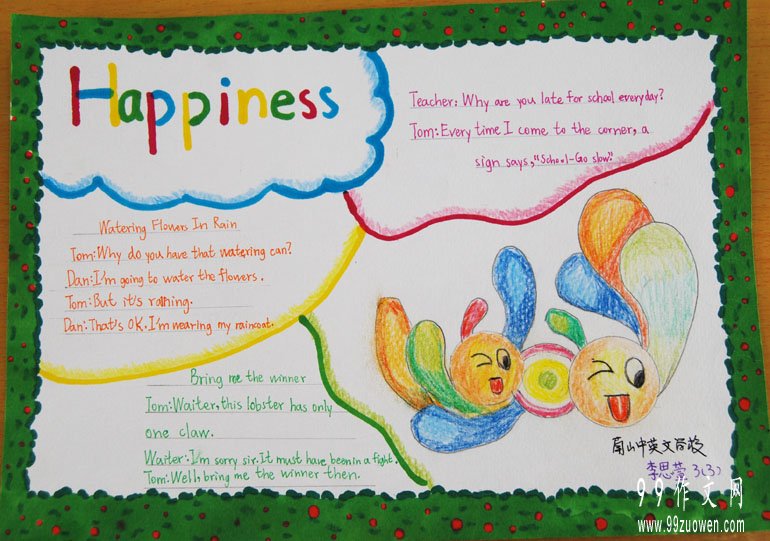 Happiness
Teacher: Why are you late for school everyday?
Tom: Every time I come to the corner, a
sign says, "School-Go slow."
Watering Flowers In Rain
Tom: Why do you have that watering can?
Dan: I'm going to water the flowers.
Tom: But it's raining.
Dan: That's OK. I'm wearing my raincoat.
Bring me the winner
Tom: Waiter, this lobster has only
one claw.
Waiter: I'm sorry sir. It must have been in a fight.
Tom: Well, bring me the winner then.
南山中英文学校
李思萱 3(3)
99作文网
www.99zuowen.com